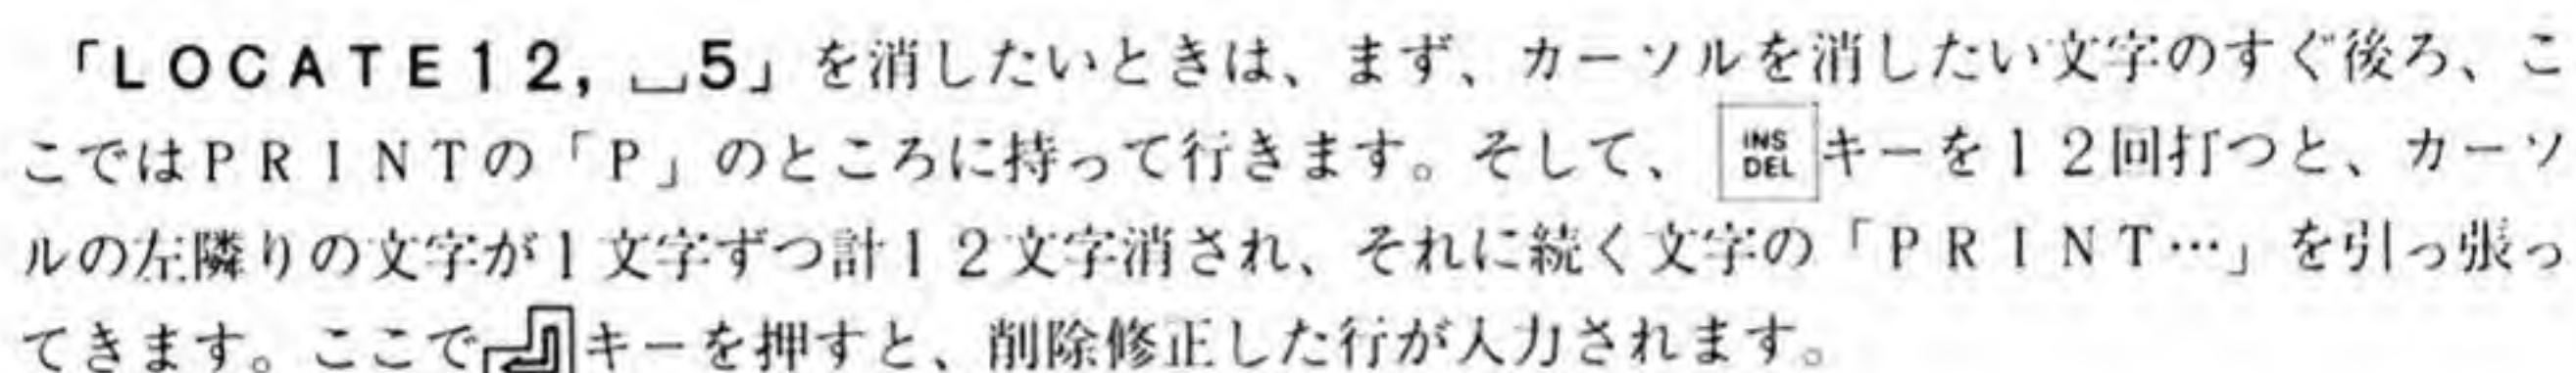 「LOCATE12, ␣5」を消したいときは、まず、カーソルを消したい文字のすぐ後ろ、こ
こではPRINTの「P」のところに持って行きます。そして、INS DELキーを12回打つと、カーソ
ルの左隣りの文字が1文字ずつ計12文字消され、それに続く文字の「PRINT…」を引っ張っ
てきます。ここで⏎キーを押すと、削除修正した行が入力されます。